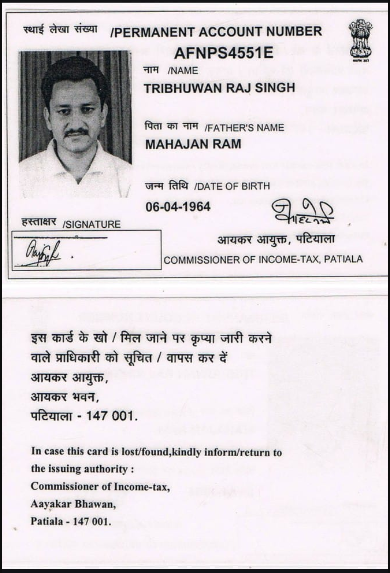 स्थाई लेखा संख्या /PERMANENT ACCOUNT NUMBER
AFNPS4551E
नाम /NAME
TRIBHUWAN RAJ SINGH
पिता का नाम /FATHER'S NAME
MAHAJAN RAM
जन्म तिथि /DATE OF BIRTH
06-04-1964
हस्ताक्षर /SIGNATURE
आयकर आयुक्त, पटियाला
COMMISSIONER OF INCOME-TAX, PATIALA
इस कार्ड के खो / मिल जाने पर कृप्या जारी करने
वाले प्राधिकारी को सूचित / वापस कर दें
आयकर आयुक्त,
आयकर भवन,
पटियाला - 147 001.
In case this card is lost/found,kindly inform/return to
the issuing authority :
Commissioner of Income-tax,
Aayakar Bhawan,
Patiala - 147 001.